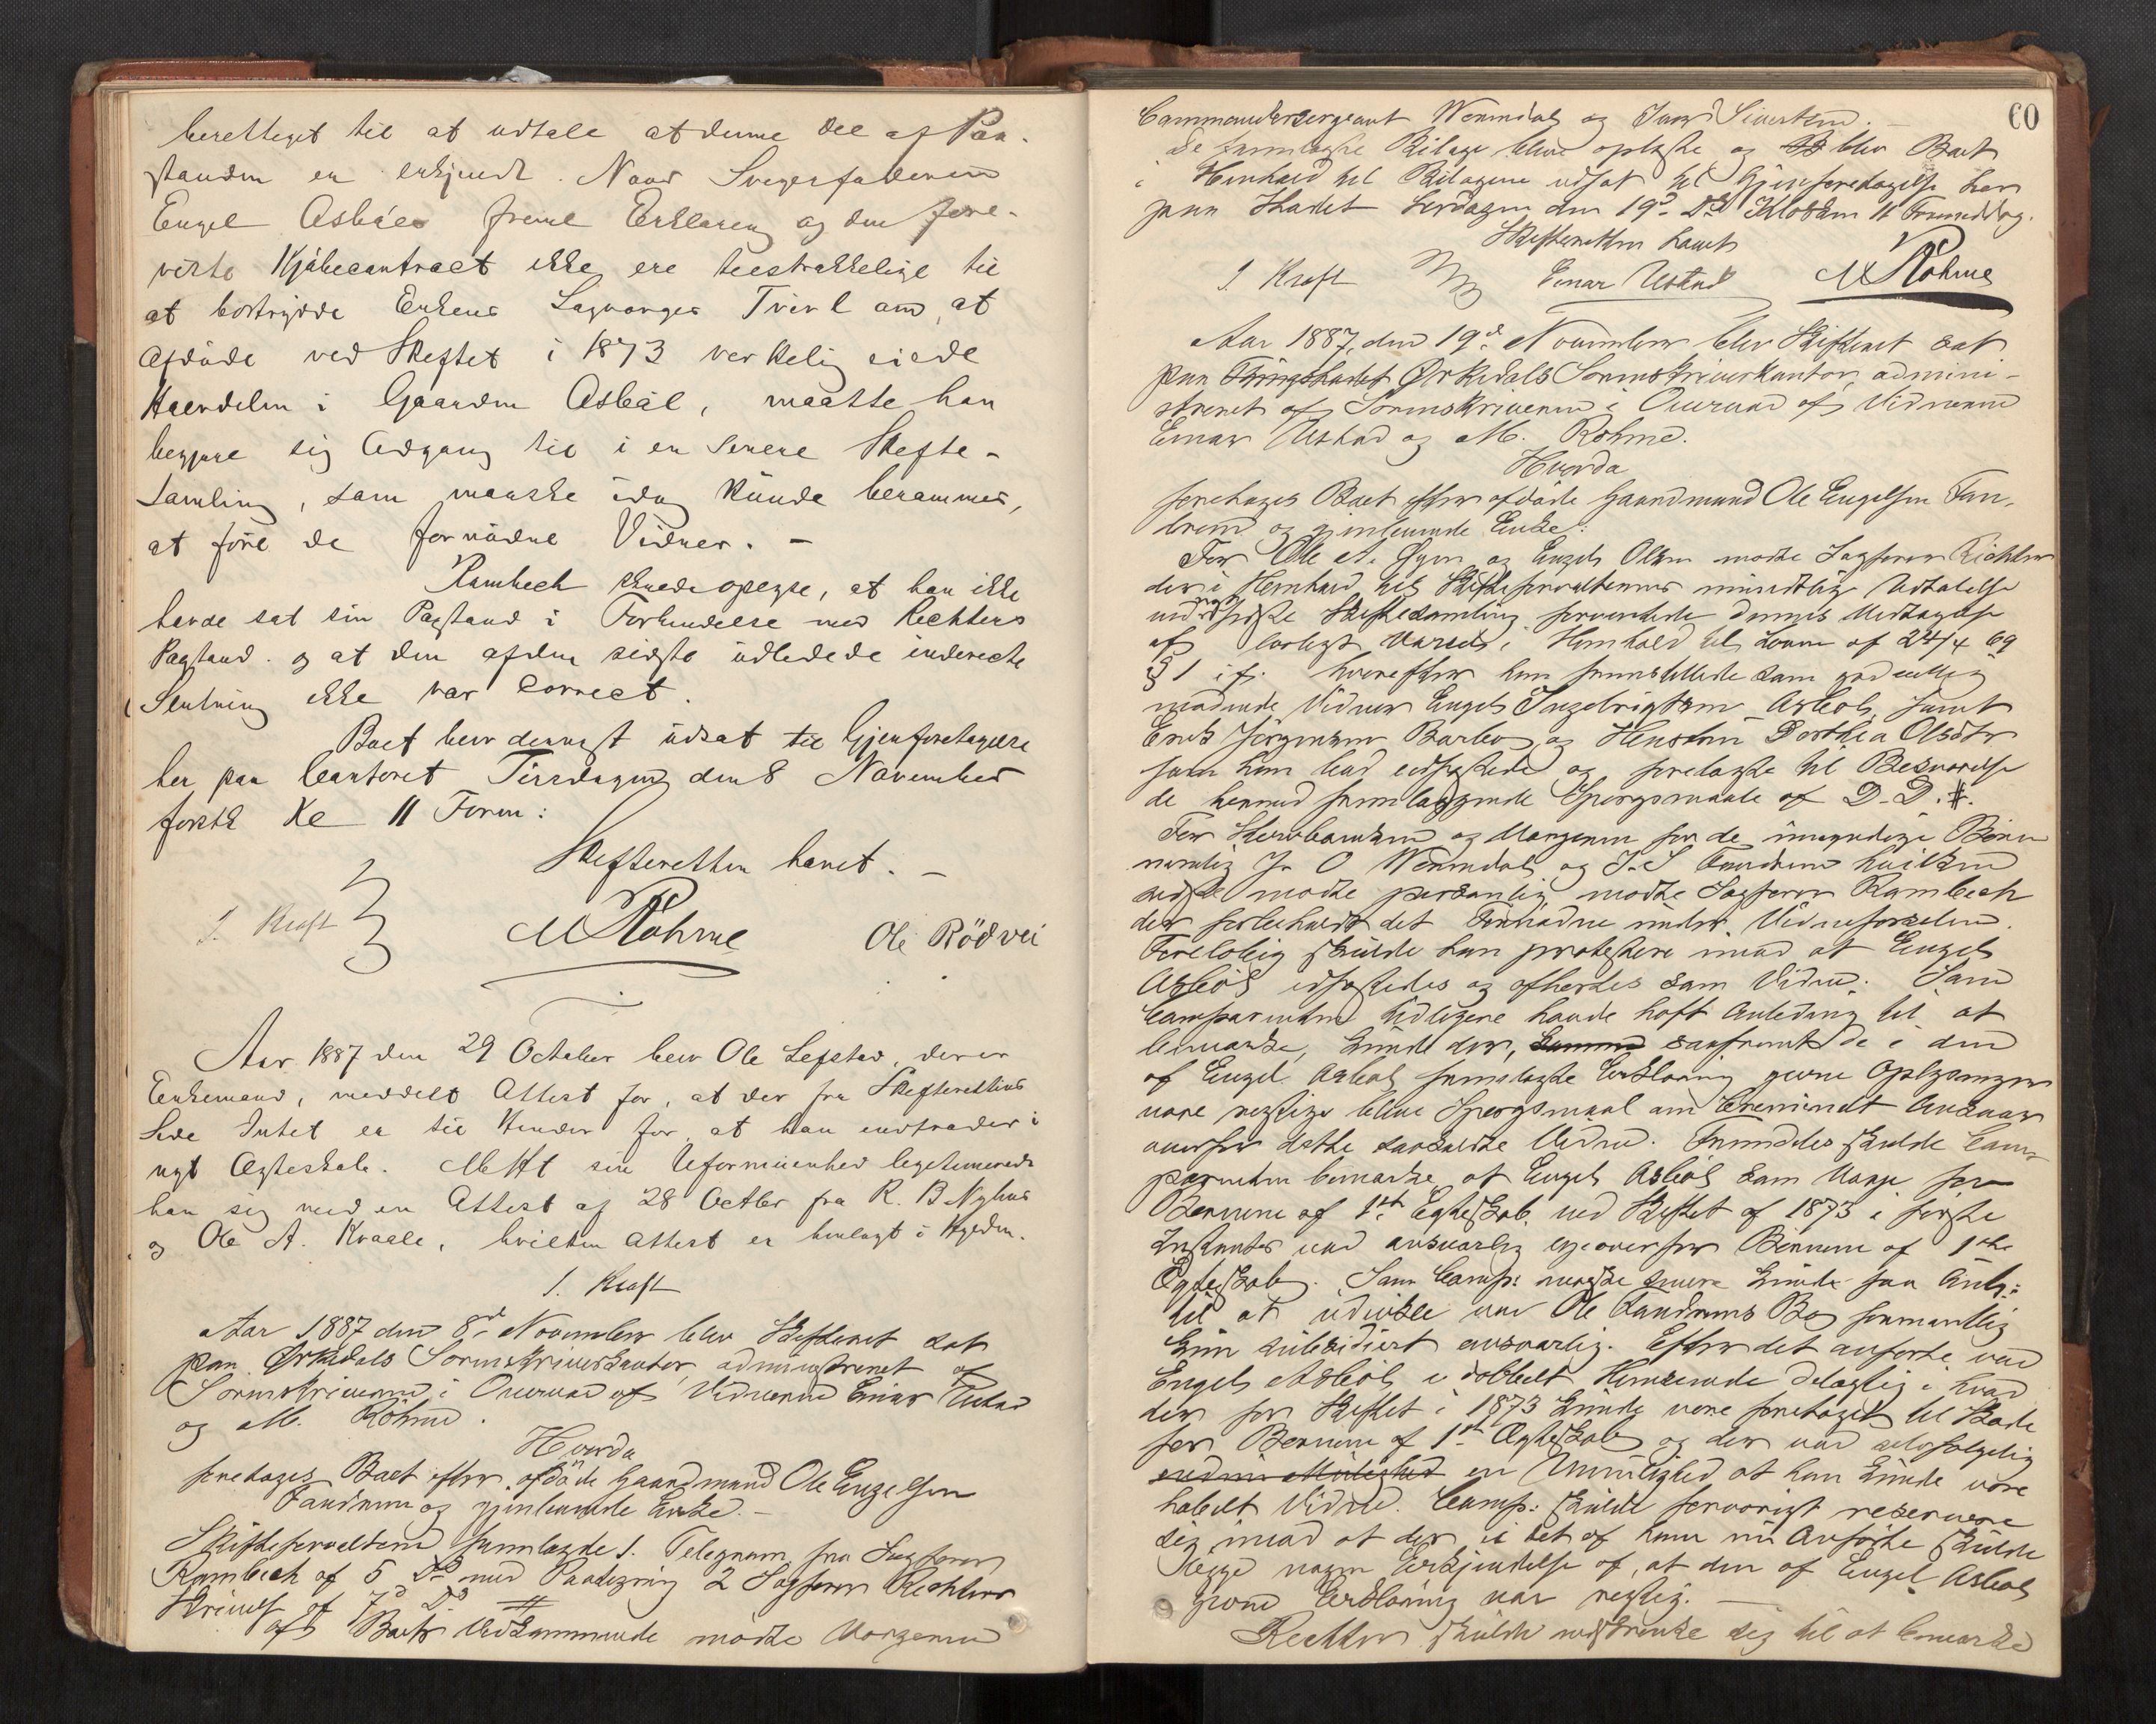 berettiget til at udtale at denne del af Paa-
standen er erkjendt. Naar Svigerfaderen
Engel Asbøls fremlagte Erklæring og den fore-
viste Kjøbecontract ikke ere tilstrækkelige til
at bortrydde Enkens Lagværges Tvivl om, at
Afdøde ved Skiftet i 1873 verkelig eiede
Halvdelen i Gaarden Asbøl, maatte han
begjære sig Adgang til i en senere Skifte-
samling, som maaske idag kunde berammes,
at føre de fornødne Vidner. -
Rambech skulde opl., at han ikke
havde sat sin Paastand i Forbindelse med Richters
Paastand. og at den af den sidste udledede inderecte
Slutning ikke var correct.
Boet blev dernæst udsat til Gjenforetagelse
her paa Contoret Tirsdagen den 8 November
førstk Kl 11 Form:
Skifteretten hævet. -
J. Kraft M Röhme Ole Rödvei
Aar 1887 den 29 October blev Ole Lefstad, der er
Enkemand, meddelt Attest for, at der fra Skifterettens
Side Intet er til Hinder for at han indtræder i
nyt Ægteskab. Mht sin Uformuenhed legitimerede
han sig med en Attest af 28 Octbr fra R. B Nyhus
og Ole A. Kvaale, hvilken Attest er henlagt i Hylden.
J. Kraft
Aar 1887 den 8de November blev Skifteret sat
paa Ørkedals Sorenskriverkontor administreret af
Sorenskriveren i Overvær af Vidnerne Einar Ustad
og M. Röhme.
Hvorda
foretoges Boet efter afdøde Gaardmand Ole Engelsen
Fandrem og gjenlevende Enke. -
Skifteforvalteren fremlagde 1. Telegram fra Sagfører
Rambech af 5 Ds med Paategning 2 Sagfører Richters
Skrivelse af 7de Ds #
Af Boets Vedkommende mødte Værgerne
60
Commandersergeant Wenndal og Iver Sivertsen. -
De fremlagte Bilage bleve oplæste og blev Boet
i Henhold til Bilagene udsat til Gjenforetagelse her
paa Stedet Lørdagen den 19de Ds Klokken 11 Formiddag.
Skifteretten hævet
J. Kraft Einar Ustad M Röhme
Aar 1887, den 19de November blev Skifteret sat
paa Thingstedet Ørkedals Sorenskriverkontor, admini-
streret af Sorenskriveren i Overvær af Vidnerne
Einar Ustad og M. Röhme.
Hvorda
foretoges Boet efter afdøde Gaardmand Ole Engelsen Fan-
drem og gjenlevende Enke:
For Ole A. Øyen og Engel Olsen mødte Sagfører Richter
der i Henhold til Skifteforvalterens mundtlige Udtalelse
ved sidste Skiftesamling forventede dennes Vedtagelse
af lovligt Varsel, i Henhold til Loven af 24/4 69
§ 1 jf. hvorefter han fremstillede som godvillig
mødende Vidner Engel Ingebrigtsen Asbøl, samt
Erik Jörgensen Barbo og Hustru Dorthea Olsdtr
som han bad edfæstede og forelagte til Besvarelse
de hermed fremlæggende Spørgsmaale af D. D. #.
For Stervboenken og Værgerne for de umyndige Børn
nemlig O Wenndal og I. S Fandrem hvilken
sidste mødte personlig mødte Sagfører Rambech
der forbeholdt det Fornødne under Vidneførselen.
Foreløbig skulde han protestere mod at Engel
Asbøl edfæstedes og afhørtes som Vidne. Som
Comparenten tidligere havde havt Anledning til at
bemærke, kunde der, saafremt de i den
af Engel Asbøl fremlagte Erklæring givne Oplysninger
vare rigtige blive Spørgsmaal om eventuelt Ansvar
overfor dette saakaldte Vidne. Fremdeles skulde Com-
parenten bemærke at Engel Asbøl som Værge for
Børnene af 1ste Egteskab ved Skiftet af 1873 i første
Instants var ansvarlig ligeoverfor Børnene af 1ste
Egteskab. Som Comp: maaske senere kunde faa Anl:
til at udvikle var Ole Fandrems Bo formentlig
kun subsidiært ansvarlig. Efter det anførte var
Engel Asbøl i dobbelt Henseende delagtig i hvad
der for Skiftet i 1873 kunde være foretaget til Skade
for Børnene af 1ste Egteskab og der var selvfølgelig
endnu Mulighed en Umulighed at han kunde være
habelt Vidne. Comp: skulde forøvrigt reservere
sig imod at der i det af ham nu Anførte skulde
ligge nogen Erkjendelse af, at den af Engel Asbøl
givne Erklæring var rigtig. -
Richter skulde indskrænke sig til at bemærke